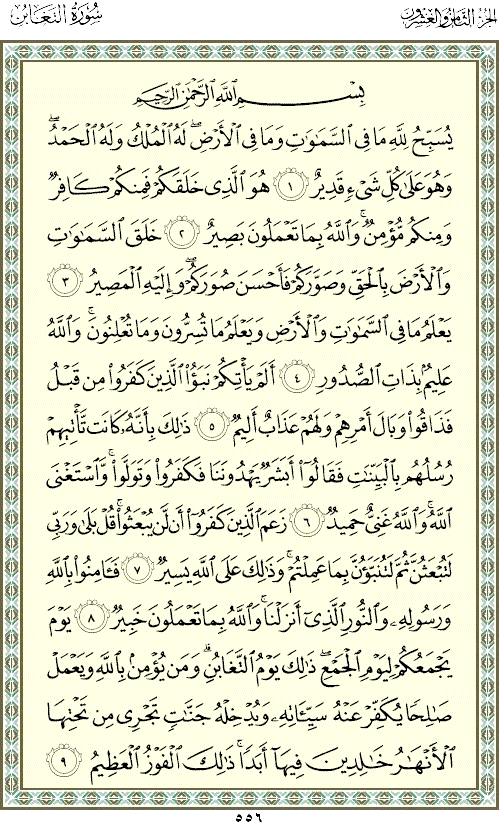 سُورَةُ التَّغَابُنِ
الجُزْءُ الثَّامِنُ وَالعِشْرُونَ
بِسْمِ ٱللَّهِ ٱلرَّحْمَٰنِ ٱلرَّحِيمِ
يُسَبِّحُ لِلَّهِ مَا فِى ٱلسَّمَٰوَٰتِ وَمَا فِى ٱلْأَرْضِ ۖ لَهُ ٱلْمُلْكُ وَلَهُ ٱلْحَمْدُ ۖ
وَهُوَ عَلَىٰ كُلِّ شَىْءٍ قَدِيرٌ ١ هُوَ ٱلَّذِى خَلَقَكُمْ فَمِنكُمْ كَافِرٌ
وَمِنكُم مُّؤْمِنٌ ۚ وَٱللَّهُ بِمَا تَعْمَلُونَ بَصِيرٌ ٢ خَلَقَ ٱلسَّمَٰوَٰتِ
وَٱلْأَرْضَ بِٱلْحَقِّ وَصَوَّرَكُمْ فَأَحْسَنَ صُوَرَكُمْ ۖ وَإِلَيْهِ ٱلْمَصِيرُ ٣
يَعْلَمُ مَا فِى ٱلسَّمَٰوَٰتِ وَٱلْأَرْضِ وَيَعْلَمُ مَا تُسِرُّونَ وَمَا تُعْلِنُونَ ۚ وَٱللَّهُ
عَلِيمٌۢ بِذَاتِ ٱلصُّدُورِ ٤ أَلَمْ يَأْتِكُمْ نَبَؤُا۟ ٱلَّذِينَ كَفَرُوا۟ مِن قَبْلُ
فَذَاقُوا۟ وَبَالَ أَمْرِهِمْ وَلَهُمْ عَذَابٌ أَلِيمٌ ٥ ذَٰلِكَ بِأَنَّهُۥ كَانَت تَّأْتِيهِمْ
رُسُلُهُم بِٱلْبَيِّنَٰتِ فَقَالُوٓا۟ أَبَشَرٌ يَهْدُونَنَا فَكَفَرُوا۟ وَتَوَلَّوا۟ ۚ وَّٱسْتَغْنَى
ٱللَّهُ ۚ وَٱللَّهُ غَنِىٌّ حَمِيدٌ ٦ زَعَمَ ٱلَّذِينَ كَفَرُوٓا۟ أَن لَّن يُبْعَثُوا۟ ۚ قُلْ بَلَىٰ وَرَبِّى
لَتُبْعَثُنَّ ثُمَّ لَتُنَبَّؤُنَّ بِمَا عَمِلْتُمْ ۚ وَذَٰلِكَ عَلَى ٱللَّهِ يَسِيرٌ ٧ فَـَٔامِنُوا۟ بِٱللَّهِ
وَرَسُولِهِۦ وَٱلنُّورِ ٱلَّذِىٓ أَنزَلْنَا ۚ وَٱللَّهُ بِمَا تَعْمَلُونَ خَبِيرٌ ٨ يَوْمَ
يَجْمَعُكُمْ لِيَوْمِ ٱلْجَمْعِ ۖ ذَٰلِكَ يَوْمُ ٱلتَّغَابُنِ ۗ وَمَن يُؤْمِنۢ بِٱللَّهِ وَيَعْمَلْ
صَٰلِحًا يُكَفِّرْ عَنْهُ سَيِّـَٔاتِهِۦ وَيُدْخِلْهُ جَنَّٰتٍ تَجْرِى مِن تَحْتِهَا
ٱلْأَنْهَٰرُ خَٰلِدِينَ فِيهَآ أَبَدًا ۚ ذَٰلِكَ ٱلْفَوْزُ ٱلْعَظِيمُ ٩
٥٥٦